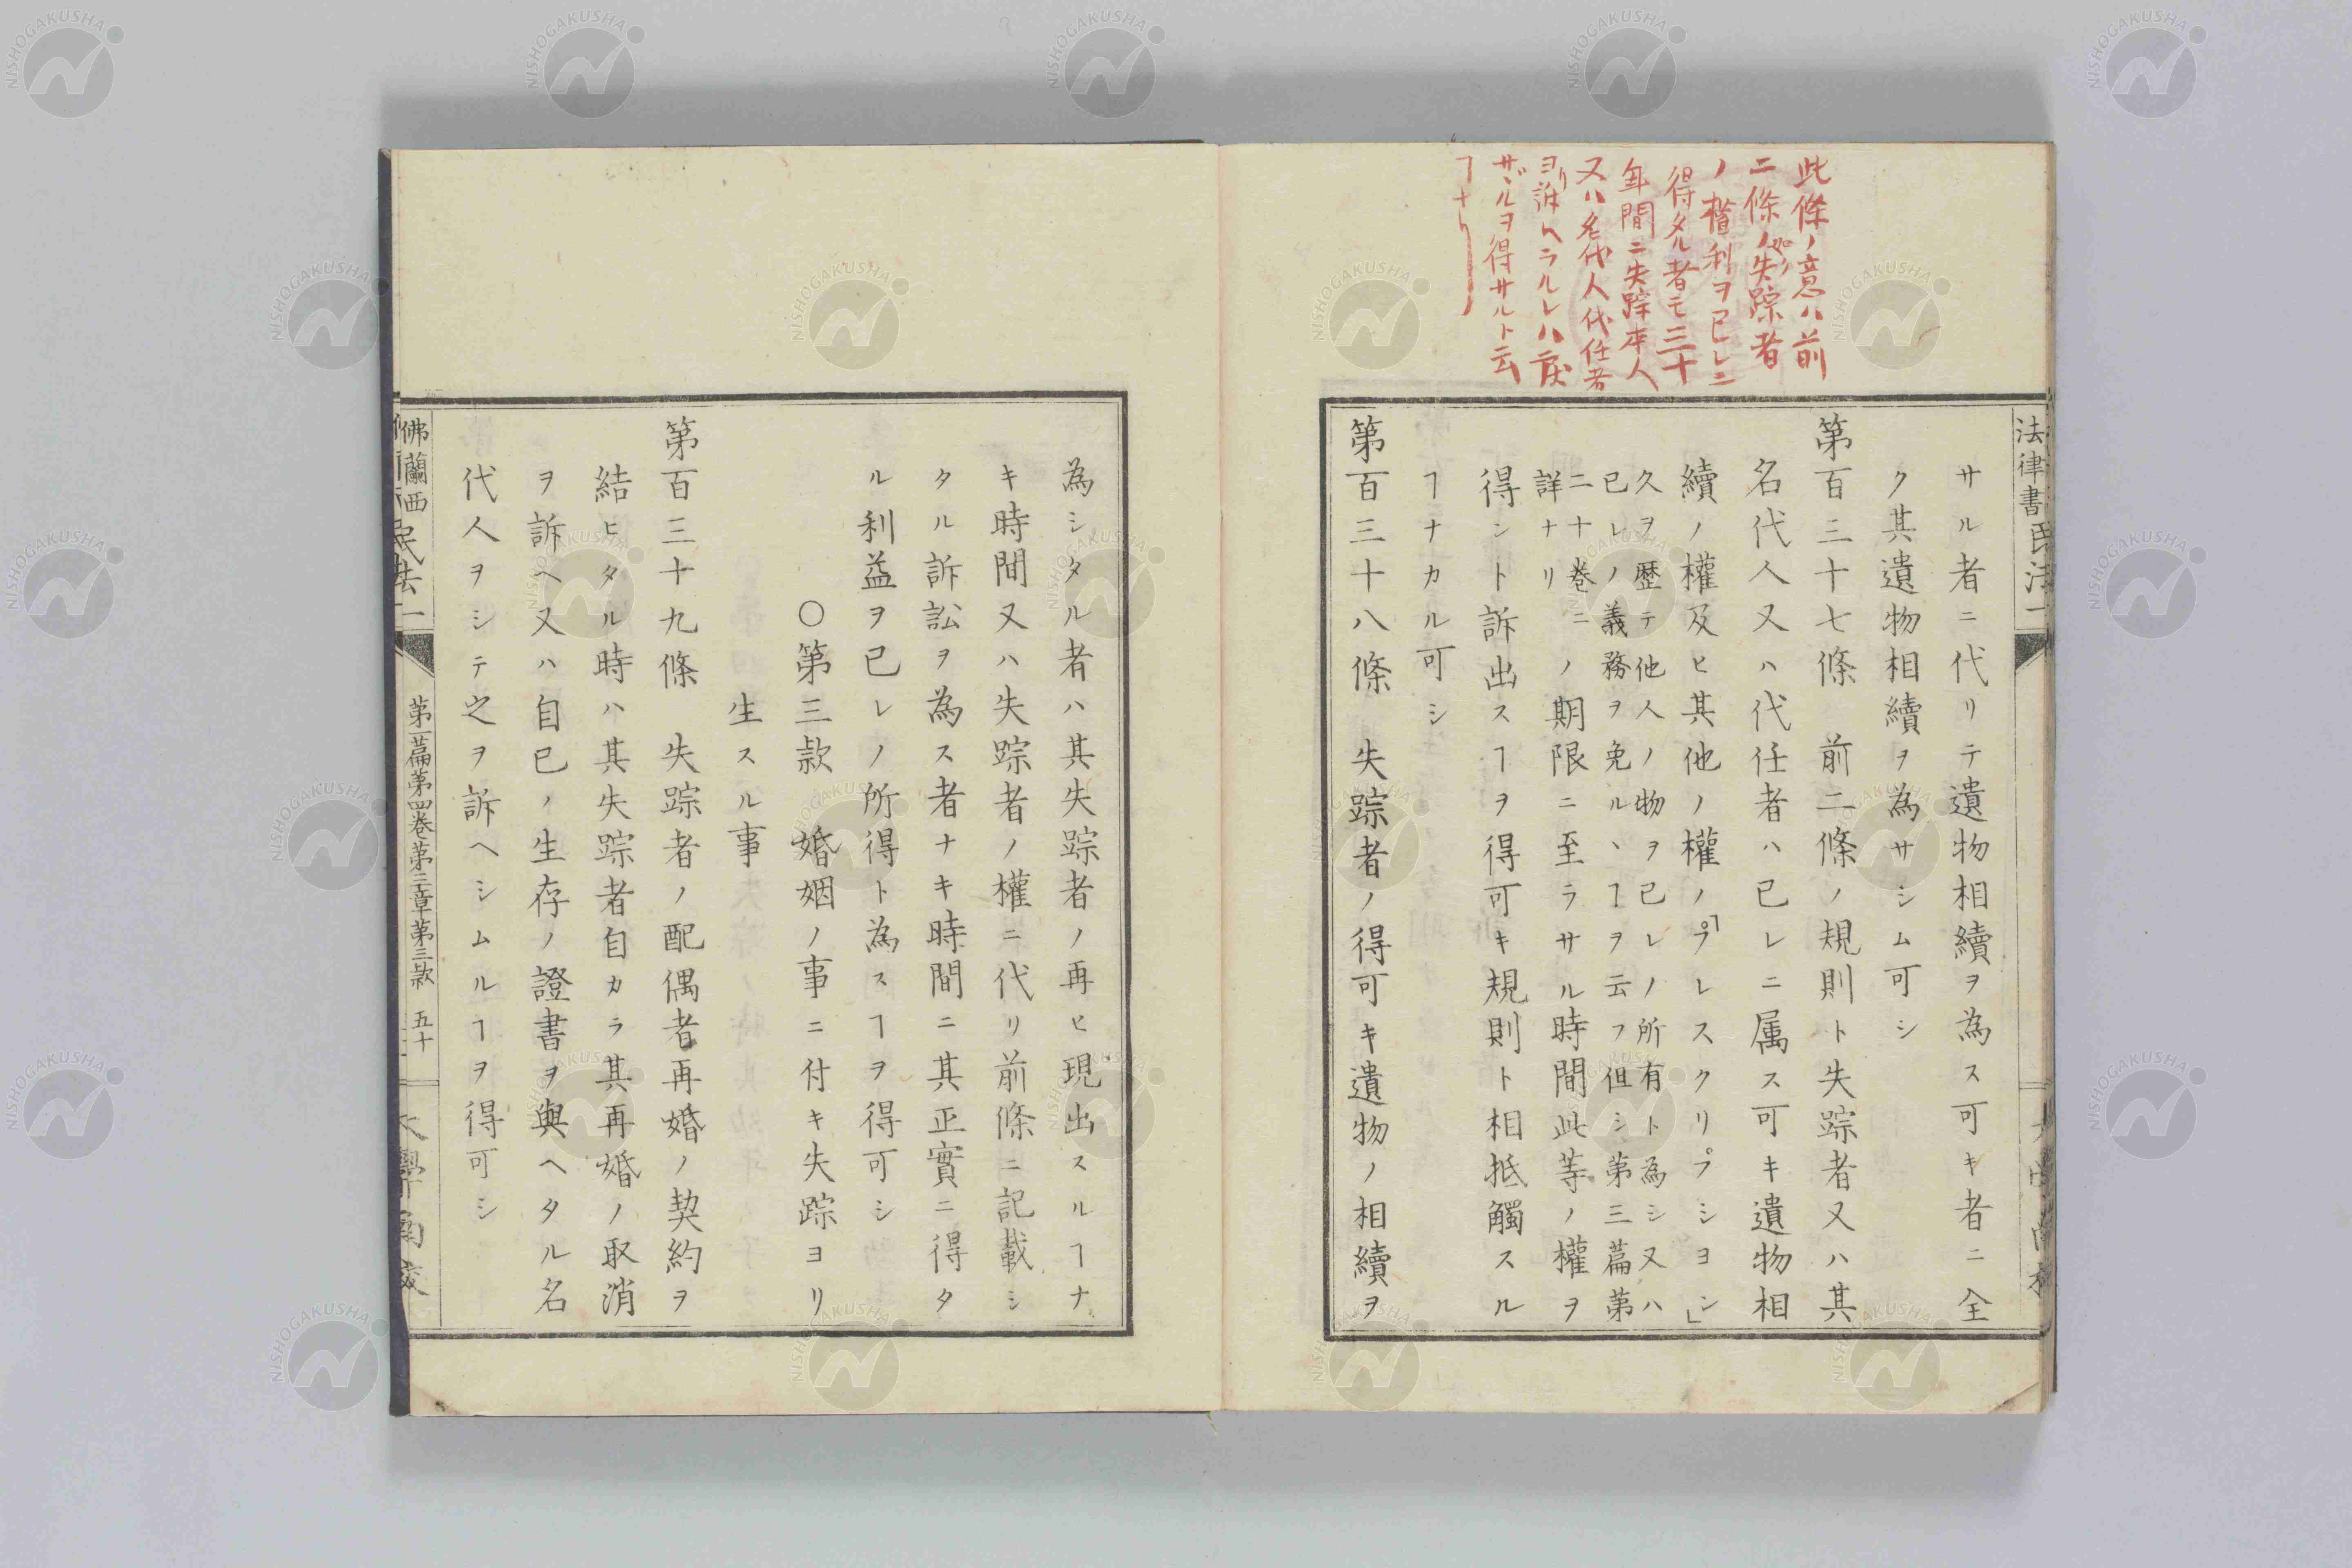 此條ノ意ハ前
二條ノ如ク失踪者
ノ權利ヲ已レニ
得タル者モ三十
年間ニ失踪本人
又ハ名代人代任者
ヨリ訴ヘラルレハ戻
サヾルヲ得サルト云
ヿナリ
法律書民法一
サル者ニ代リテ遺物相續ヲ為ス可キ者ニ全
ク其遺物相續ヲ為サシム可シ
第百三十七條 前二條ノ規則ト失踪者又ハ其
名代人又ハ代任者ハ已レニ属ス可キ遺物相
續ノ權及ヒ其他ノ權ノ「プレスクリプシヨン」
久ヲ歴テ他人ノ物ヲ已レノ所有ト為シ又ハ
已レノ義務ヲ免ルヽヿヲ云フ但シ第三篇第
二十卷ニ
詳ナリ
ノ期限ニ至ラサル時間此等ノ權ヲ
得ント訴出スヿヲ得可キ規則ト相抵觸スル
ヿナカル可シ
第百三十八條 失踪者ノ得可キ遺物ノ相續ヲ
為シタル者ハ其失踪者ノ再ヒ現出スルヿナ
キ時間又ハ失踪者ノ權ニ代リ前條ニ記載シ
タル訴訟ヲ為ス者ナキ時間ニ其正實ニ得タ
ル利益ヲ已レノ所得ト為スヿヲ得可シ
〇第三款 婚姻ノ事ニ付キ失踪ヨリ
生スル事
第百三十九條 失踪者ノ配偶者再婚ノ契約ヲ
結ヒタル時ハ其失踪者自カラ其再婚ノ取消
ヲ訴ヘ又ハ自已ノ生存ノ證書ヲ與ヘタル名
代人ヲシテ之ヲ訴ヘシムルヿヲ得可シ
佛蘭西民法一
第一篇第四卷第三章第三款 五十
大學南校
NISHOGAKUSHA